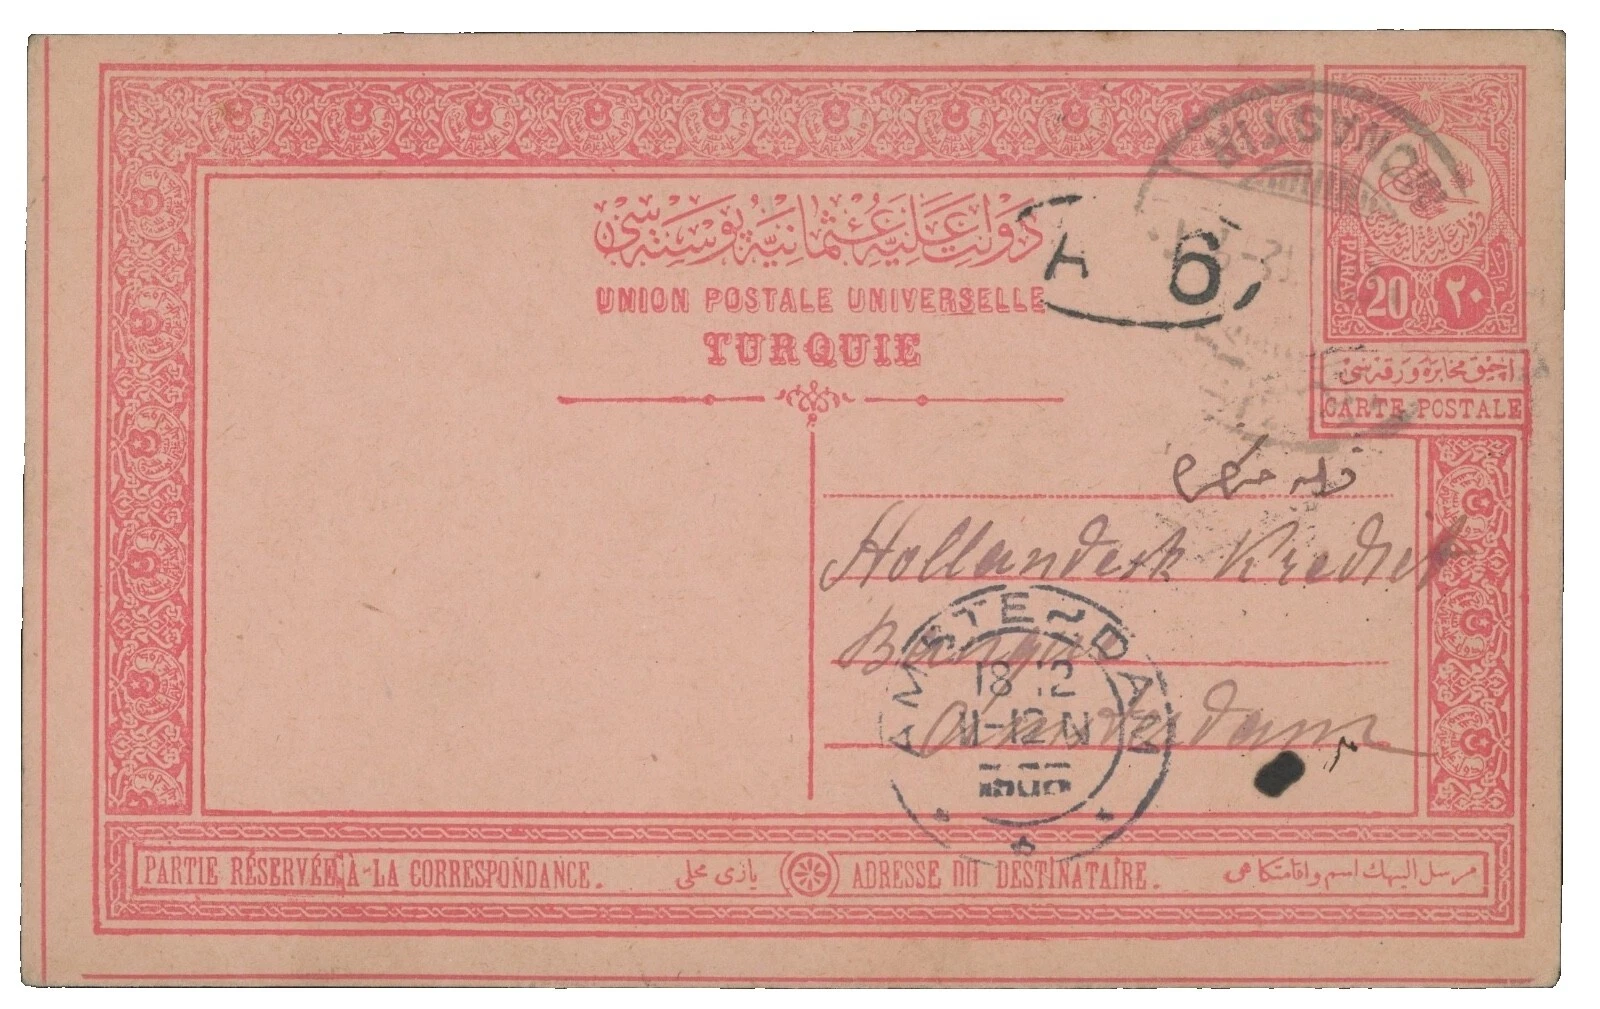 دولت عليۀ عثمانيه پوسته سی
UNION POSTALE UNIVERSELLE
TURQUIE
MONASTIR
A 6
PARA
20 ٢٠
آچيق مخابره ورقه سی
CARTE POSTALE
Hollandesk Krediet
Amsterdam
AMSTERDAM
18 12
11-12 N
PARTIE RÉSERVÉE À LA CORRESPONDANCE.
يازی محلی
ADRESSE DU DESTINATAIRE.
مرسل اليهك اسم واقامتكاهی